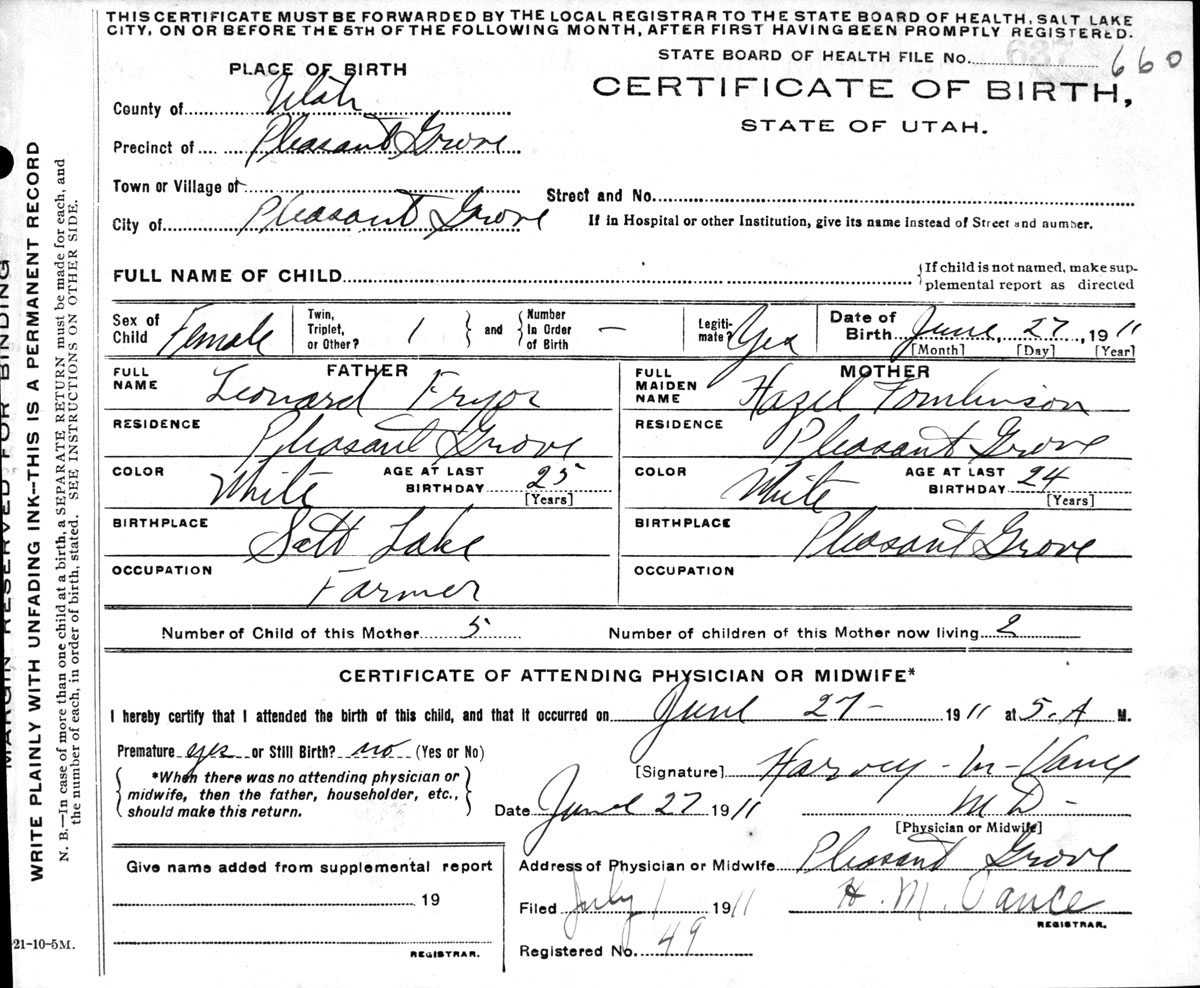 THIS CERTIFICATE MUST BE FORWARDED BY THE LOCAL REGISTRAR TO THE STATE BOARD OF HEALTH, SALT LAKE
CITY, ON OR BEFORE THE 5TH OF THE FOLLOWING MONTH, AFTER FIRST HAVING BEEN PROMPTLY REGISTERED.
STATE BOARD OF HEALTH FILE No. 637 660
PLACE OF BIRTH
CERTIFICATE OF BIRTH,
STATE OF UTAH.
County of Utah
Precinct of Pleasant Grove
Town or Village of
Street and No.
City of Pleasant Grove
If in Hospital or other Institution, give its name instead of Street and number.
FULL NAME OF CHILD
{If child is not named, make sup-
plemental report as directed
Sex of Child Female
Twin, Triplet, or Other? 1 } and { Number In Order of Birth –
Legiti-mate? Yes
Date of Birth June, 27, 1911
[Month] [Day] [Year]
FATHER
FULL NAME Leonard Fryor
RESIDENCE Pleasant Grove
COLOR White AGE AT LAST BIRTHDAY 25 [Years]
BIRTHPLACE Salt Lake
OCCUPATION Farmer
MOTHER
FULL MAIDEN NAME Hazel Tomlinson
RESIDENCE Pleasant Grove
COLOR White AGE AT LAST BIRTHDAY 24 [Years]
BIRTHPLACE Pleasant Grove
OCCUPATION
Number of Child of this Mother 5 Number of children of this Mother now living 2
CERTIFICATE OF ATTENDING PHYSICIAN OR MIDWIFE*
I hereby certify that I attended the birth of this child, and that it occurred on June 27– 1911 at 5. A M.
Premature yes or Still Birth? no (Yes or No)
*When there was no attending physician or
midwife, then the father, householder, etc.,
should make this return.
[Signature] Harvey - M - Vance
Date June 27 1911 M D –
[Physician or Midwife]
Address of Physician or Midwife Pleasant Grove
Filed July 1 1911 H. M. Vance
REGISTRAR.
Registered No. 49
Give name added from supplemental report
19
REGISTRAR.
MARGIN RESERVED FOR BINDING
WRITE PLAINLY WITH UNFADING INK--THIS IS A PERMANENT RECORD
N. B.—In case of more than one child at a birth, a SEPARATE RETURN must be made for each, and
the number of each, in order of birth, stated. SEE INSTRUCTIONS ON OTHER SIDE.
21-10-5M.